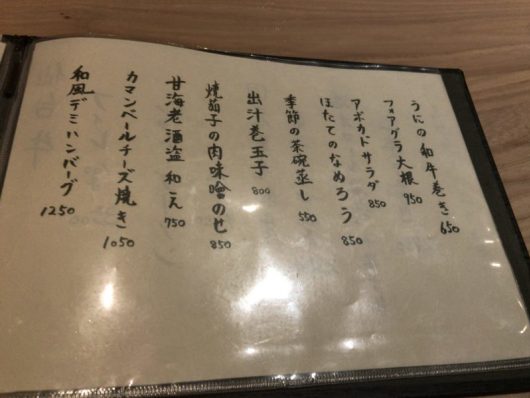 うにの和牛巻き 650
フォアグラ大根 950
アボカドサラダ 850
ほたてのなめろう 850
季節の茶碗蒸し 550
出汁巻玉子 800
焼茄子の肉味噌のせ 850
甘海老酒盗和え 750
カマンベールチーズ焼き 1050
和風デミハンバーグ 1250